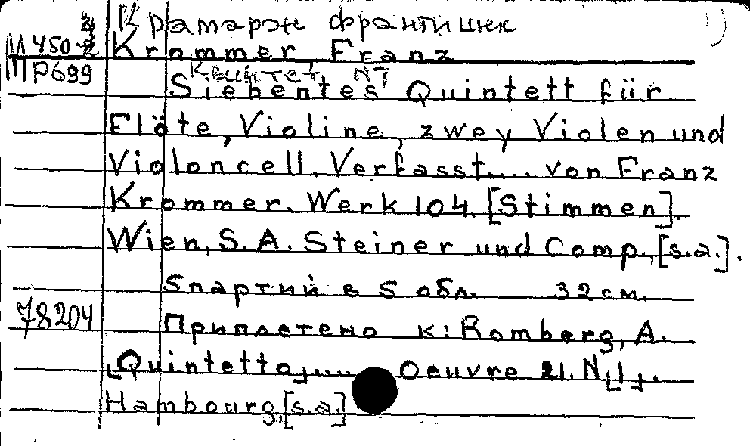 Крамарж Франтишек
М 450-2 Krommer Franz
МР699 Квинтет NT
Siebentes Quintett für
Flöte, Violine, zwey Violen und
Violoncell. Verfasst.... von Franz
Krommer. Werk 104. [Stimmen].
Wien, S. A. Steiner und Comp., [s.a.].
5 партий в 5 обл. 32 см.
78204 Приплетено к: Romberg, A.
Quintetto, .... Oeuvre 21. N[1].
Hambourg, [s.a.]